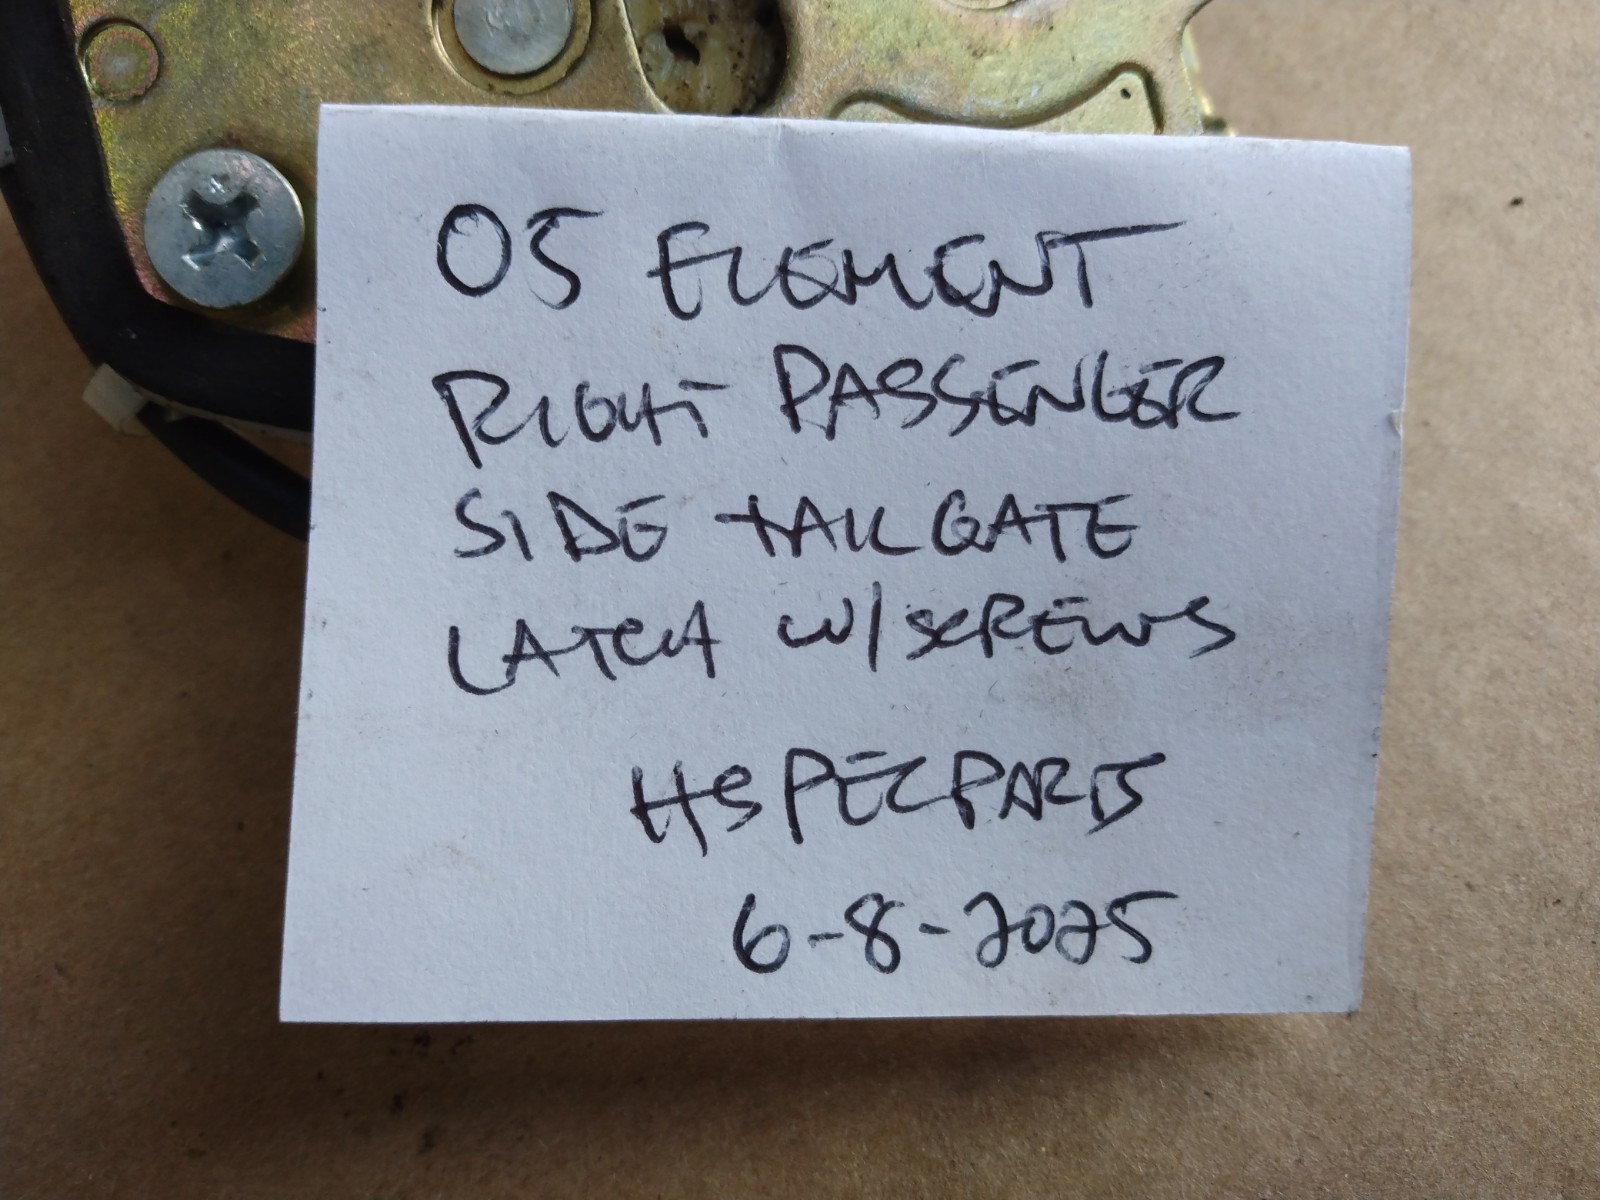 05 ELEMENT
RIGHT PASSENGER
SIDE TAILGATE
LATCH W/SCREWS
HSPECPARTS
6-8-2025